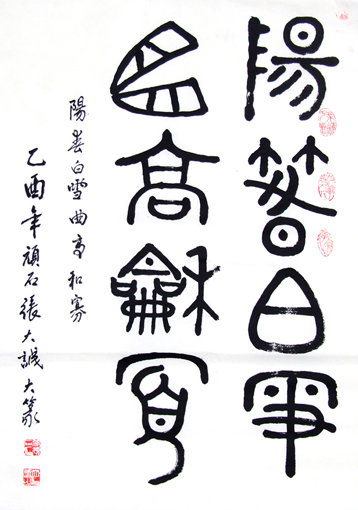 陽春白雪
曲高龢寡
陽春白雪曲高和寡
乙酉年頑石張大誠大篆